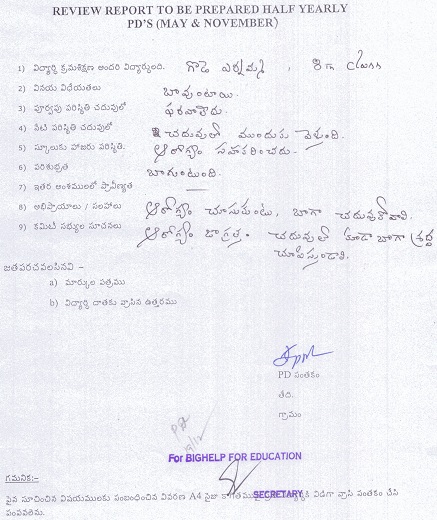 REVIEW REPORT TO BE PREPARED HALF YEARLY
PD'S (MAY & NOVEMBER)
1) విద్యార్థి క్రమశిక్షణ అందరి విద్యార్థులది. గొడె ఎర్నమ్మ , 8th Class
2) వినయ విధేయతలు బావుంటాయి.
3) పూర్వపు పరిస్థితి చదువులో ఫరవాలేదు.
4) నేటి పరిస్థితి చదువులో చదువుతో ముందుకు వెళ్తుంది.
5) స్కూలుకు హాజరు పరిస్థితి. ఆరోగ్యం సహకరించదు.
6) పరిశుభ్రత బాగుంటుంది.
7) ఇతర అంశములలో ప్రావీణ్యత
8) అభిప్రాయాలు / సలహాలు ఆరోగ్యం చూసుకుంటు, బాగా చదువుకోవాలి.
9) కమిటీ సభ్యుల సూచనలు ఆరోగ్యం జాగ్రత్త. చదువుతో కూడా బాగా శ్రద్ధ
చూపిస్తుండాలి.
జతపరచవలసినవి :-
a) మార్కుల పత్రము
b) విద్యార్థి దాతకు వ్రాసిన ఉత్తరము
PD సంతకం
తేది.
గ్రామం
For BIGHELP FOR EDUCATION
SECRETARY
గమనిక:-
పైన సూచించిన విషయములకు సంబంధించిన వివరణ A4 సైజు విడిగా వ్రాసి సంతకం చేసి
పంపవలెను.